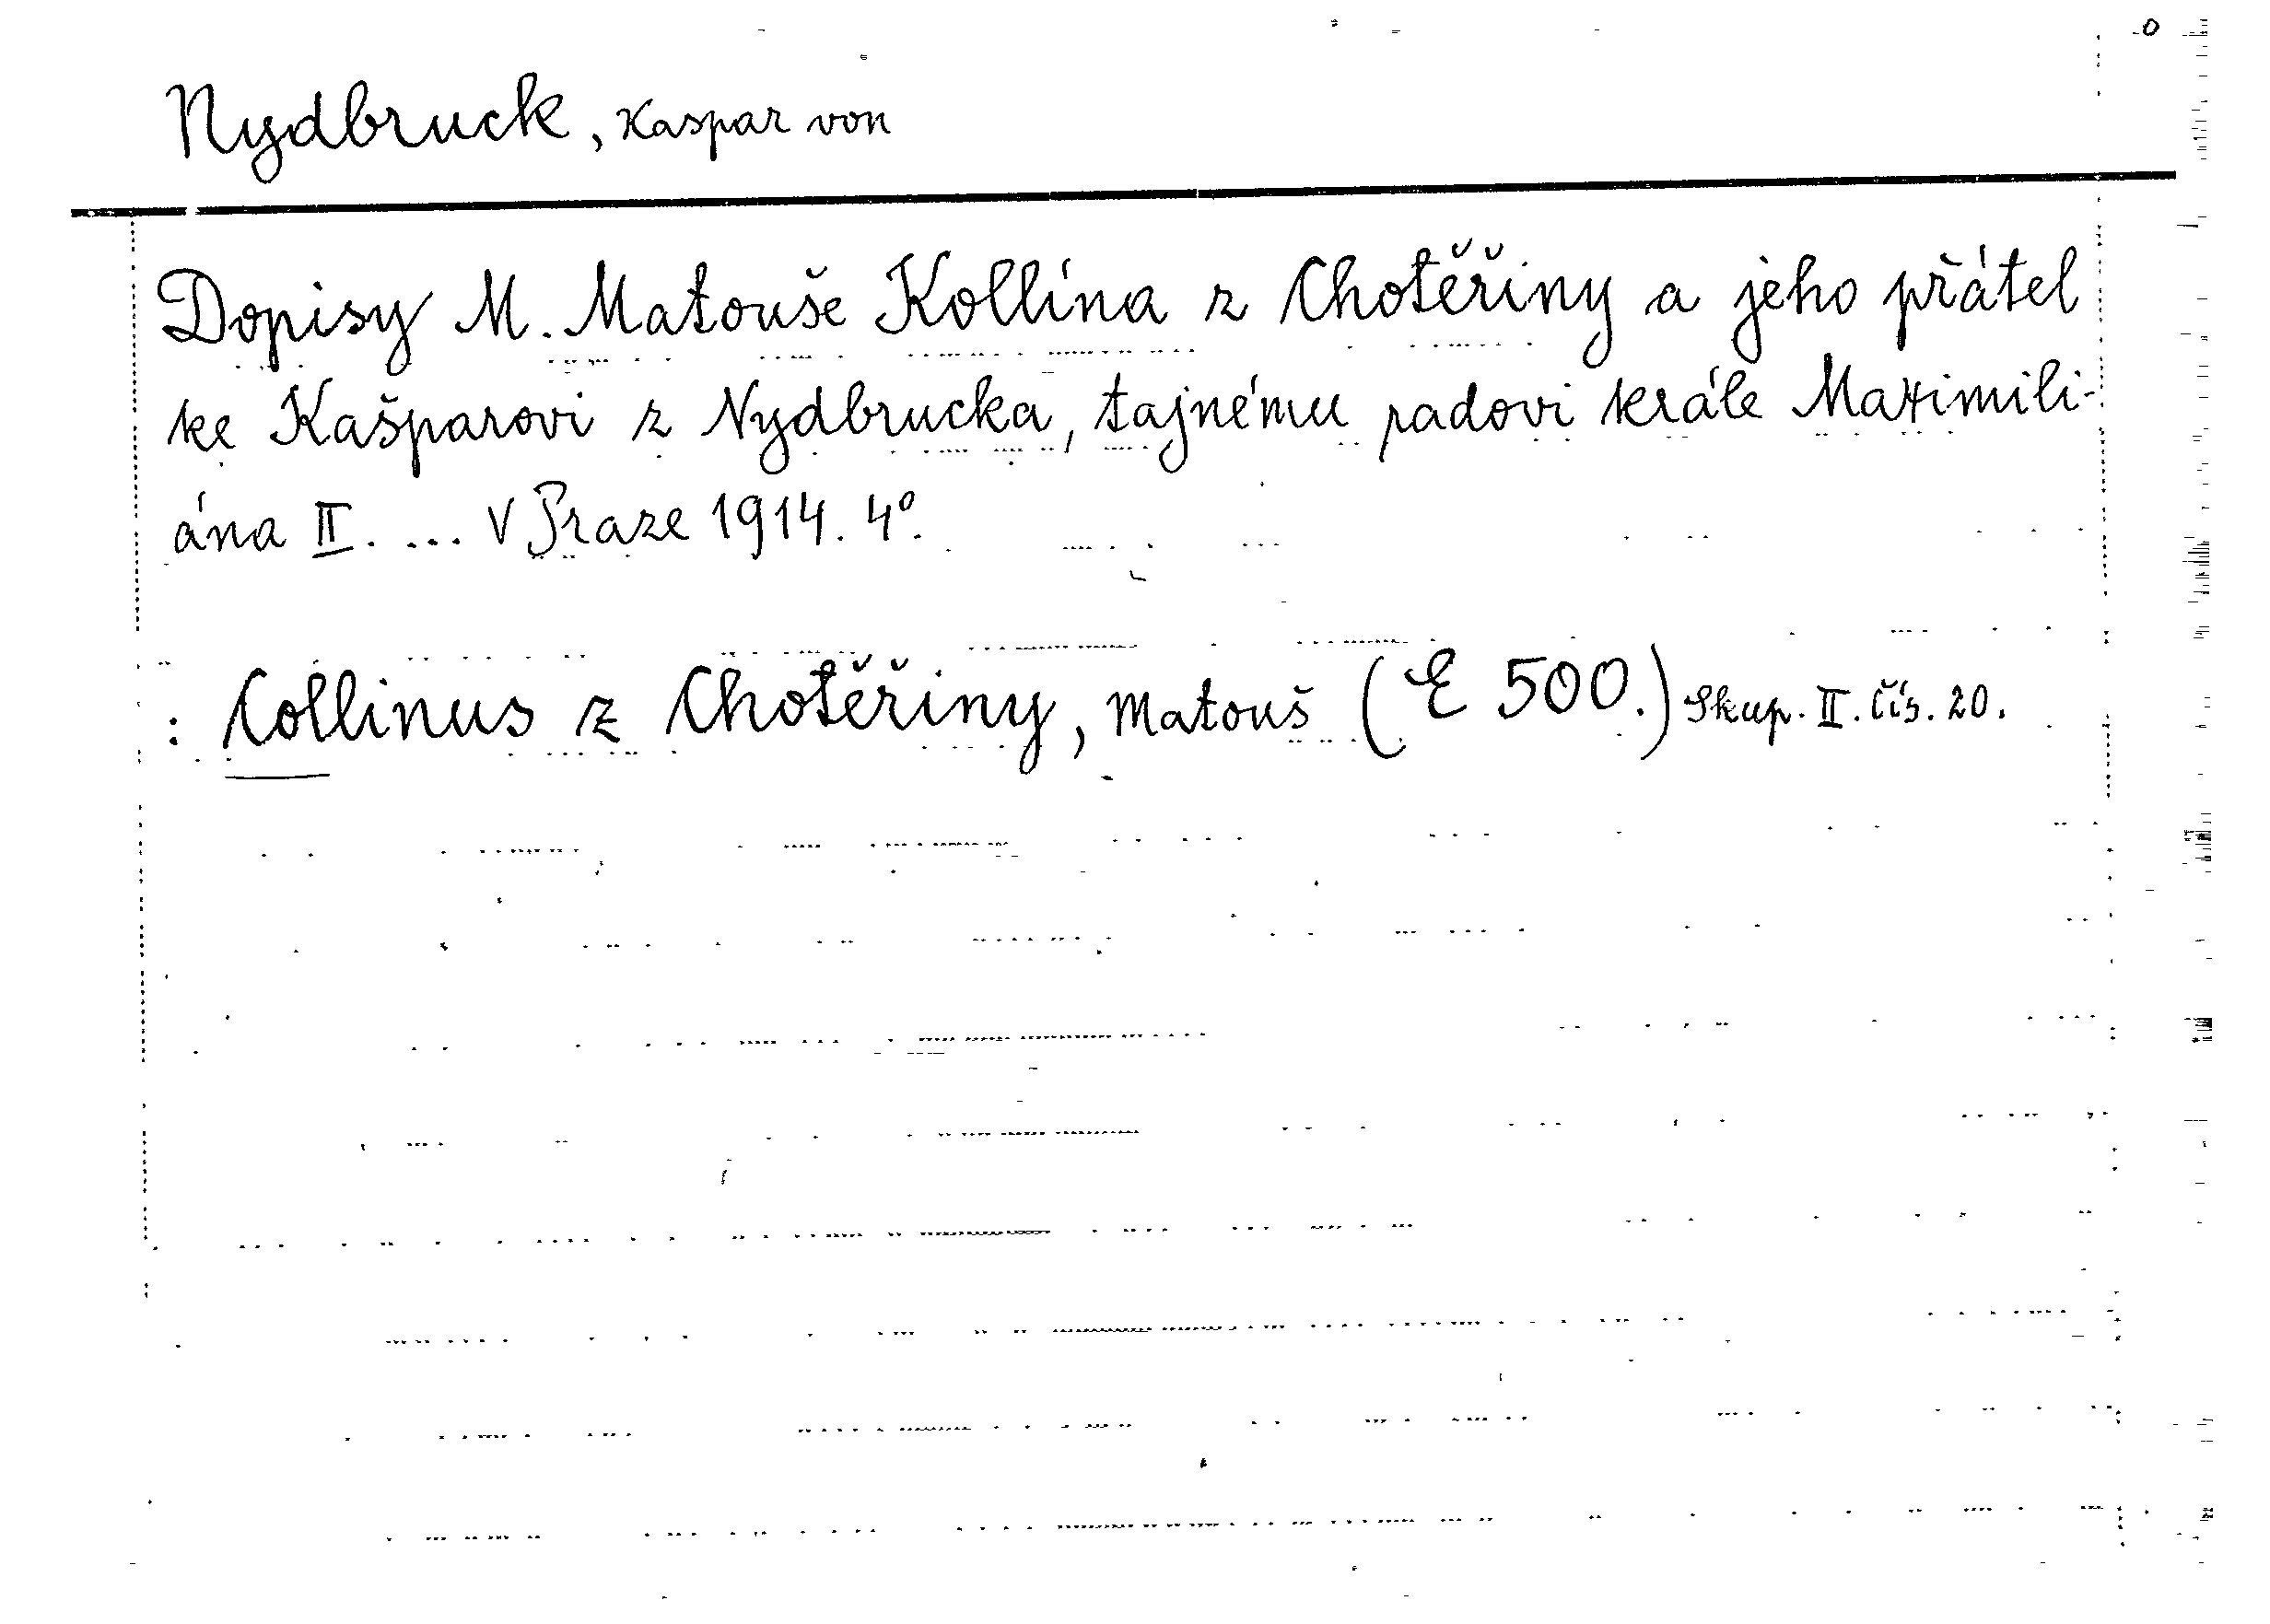 Nydbruck, Kaspar von
Dopisy M. Matouše Kollína z Chotěřiny a jeho přátel
ke Kašparovi z Nydbrucka, tajnému radovi krále Maximili-
ána II. ... V Praze 1914. 4°.
: Collinus z Chotěřiny, Matouš (E 500.) Skup. II. čís. 20.